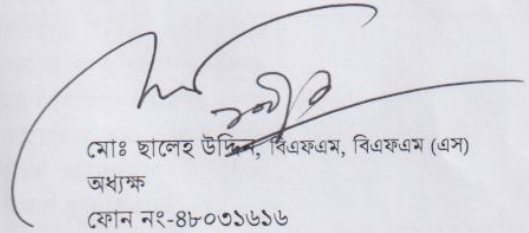 মোঃ ছালেহ উদ্দিন, বিএফএম, বিএফএম (এস)
অধ্যক্ষ
ফোন নং-৪৮০৩১৬১৬